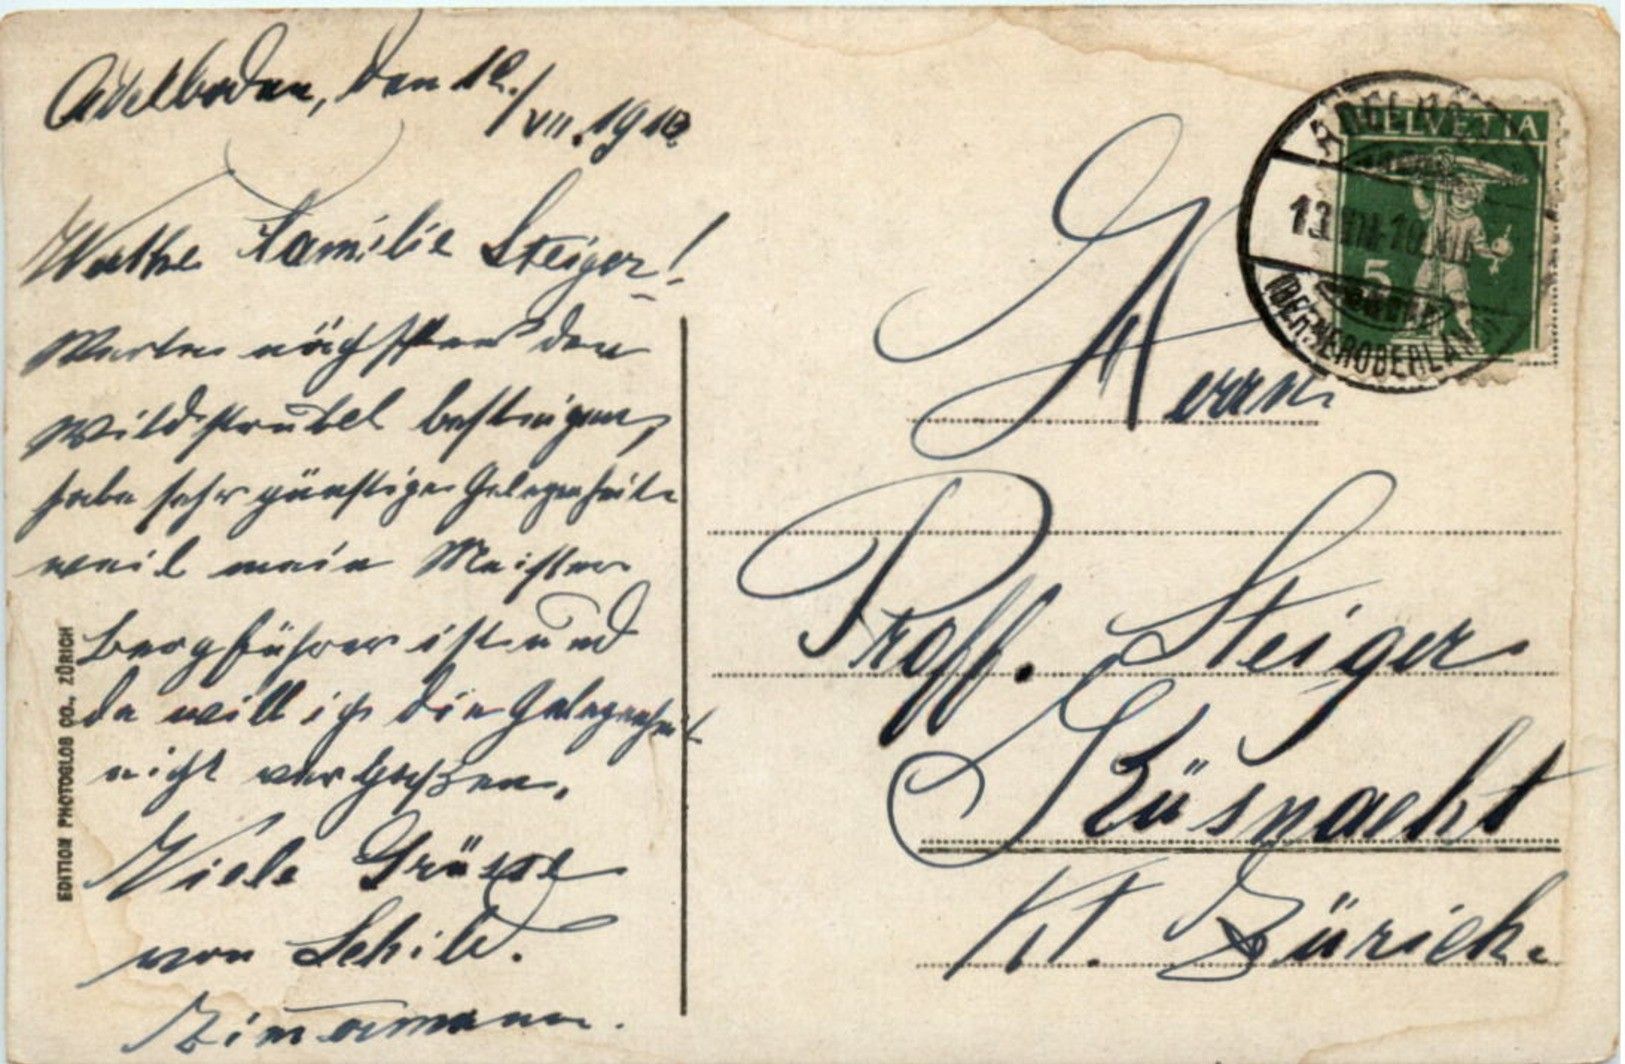 Adelboden, den 12./VII. 1910.
Werthe Familie Steiger!
Werde nächstens den
Wildstrubel besteigen,
habe sehr günstige Gelegenheit
weil mein Meister
Bergführer ist und
da will ich die Gelegenheit
nicht
Viele Grüsse
von Schild.
Zimermann.
EDITION PHOTOGLOB CO., ZÜRICH
HELVETIA
5
ADELBODEN
(BERNEROBERLAND)
Herrn
Proff. Steiger
Küsnacht
Kt. Zürich.